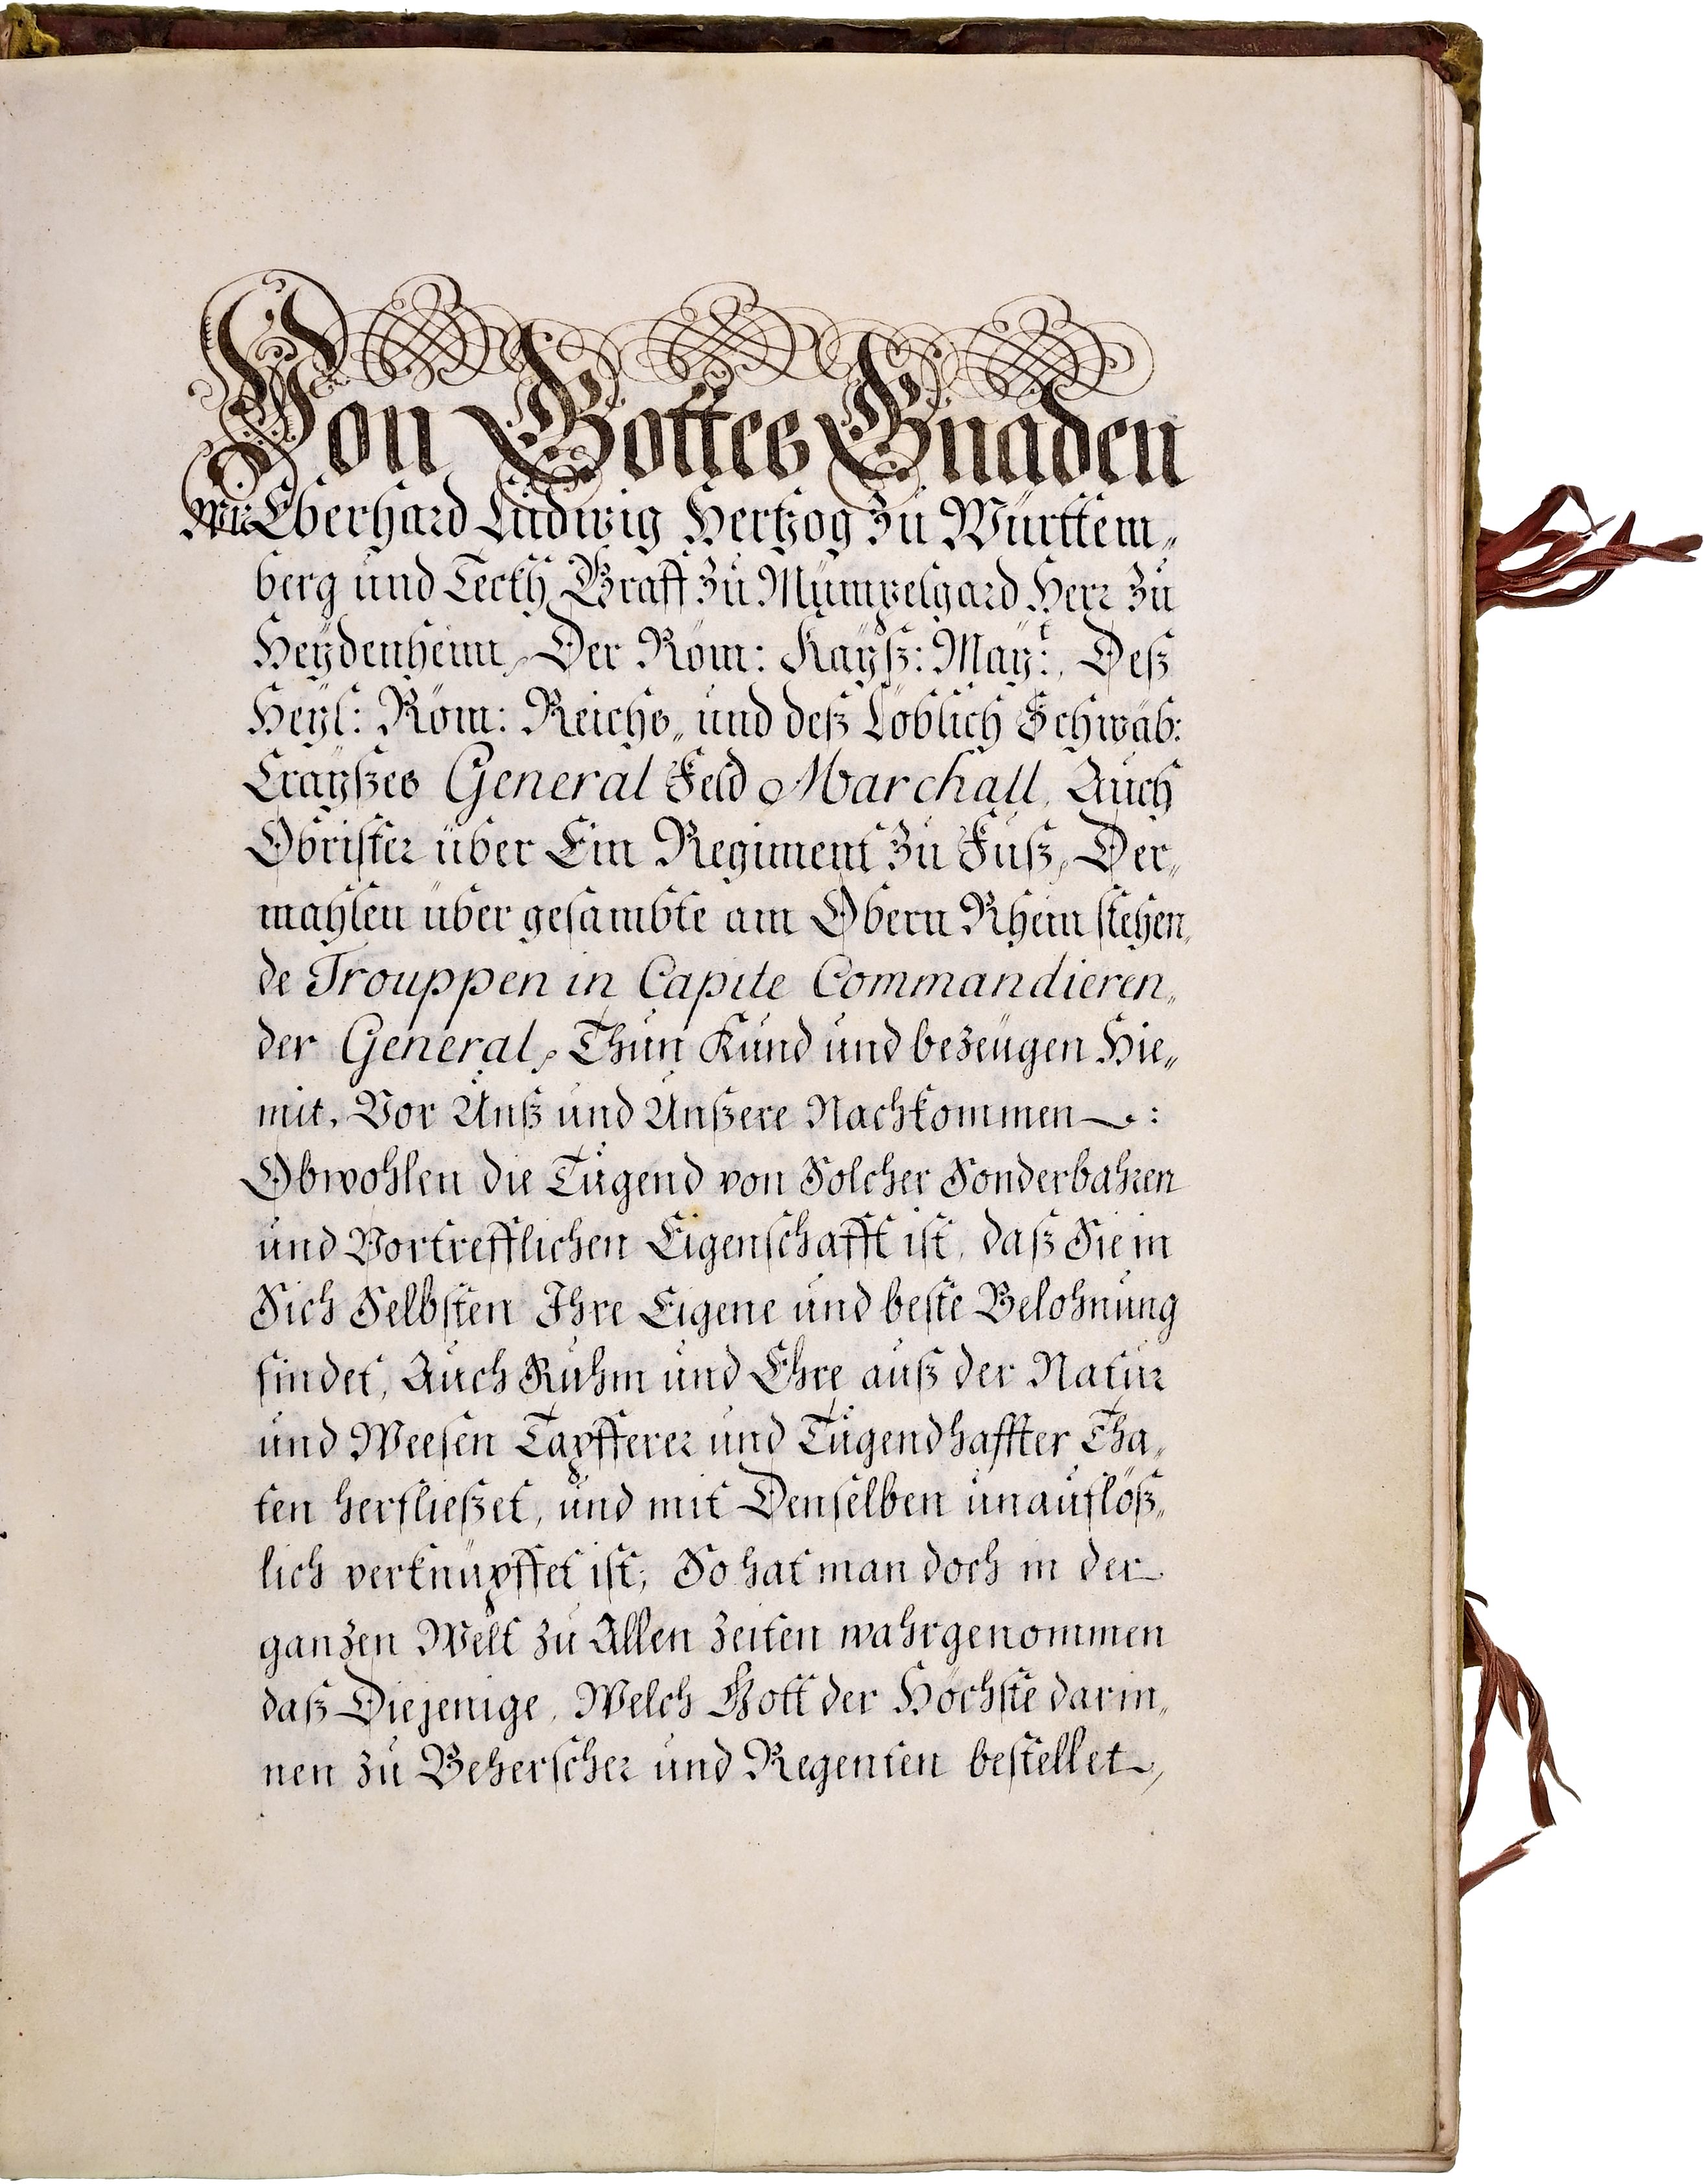 Von Gottes Gnaden
Wir Eberhard Ludwig Hertzog zu Württem„
berg und Teckh Graff zu Mümpelgard Herr zu
Heydenheim, Der Röm: Kayß: May:t, Deß
Heyl: Röm: Reichs„ und deß Löblich Schwäb:
Crayßes General Feld Marchall, Auch
Obrister über Ein Regiment zu Fuß, Der„
mahlen über gesambte am Obern Rhein stehen„
de Trouppen in Capite Commandieren„
der General, Thun Kund und bezeugen Hie„
mit, Vor Unß und Unßere Nachkommen:
Obwohlen die Tugend von Solcher Sonderbahren
und Vortrefflichen Eigenschafft ist, daß Sie in
Sich Selbsten Ihre Eigene und beste Belohnung
findet, Auch Ruhm und Ehre auß der Natur
und Weesen Tapfferer und Tugendhaffter Tha„
ten herfließet, und mit Denselben unauflöß„
lich verknüpffet ist; So hat man doch in der
ganzen Welt zu Allen Zeiten wahrgenommen
daß Diejenige, Welch Gott der Höchste darin„
nen zu Beherscher und Regenten bestellet,